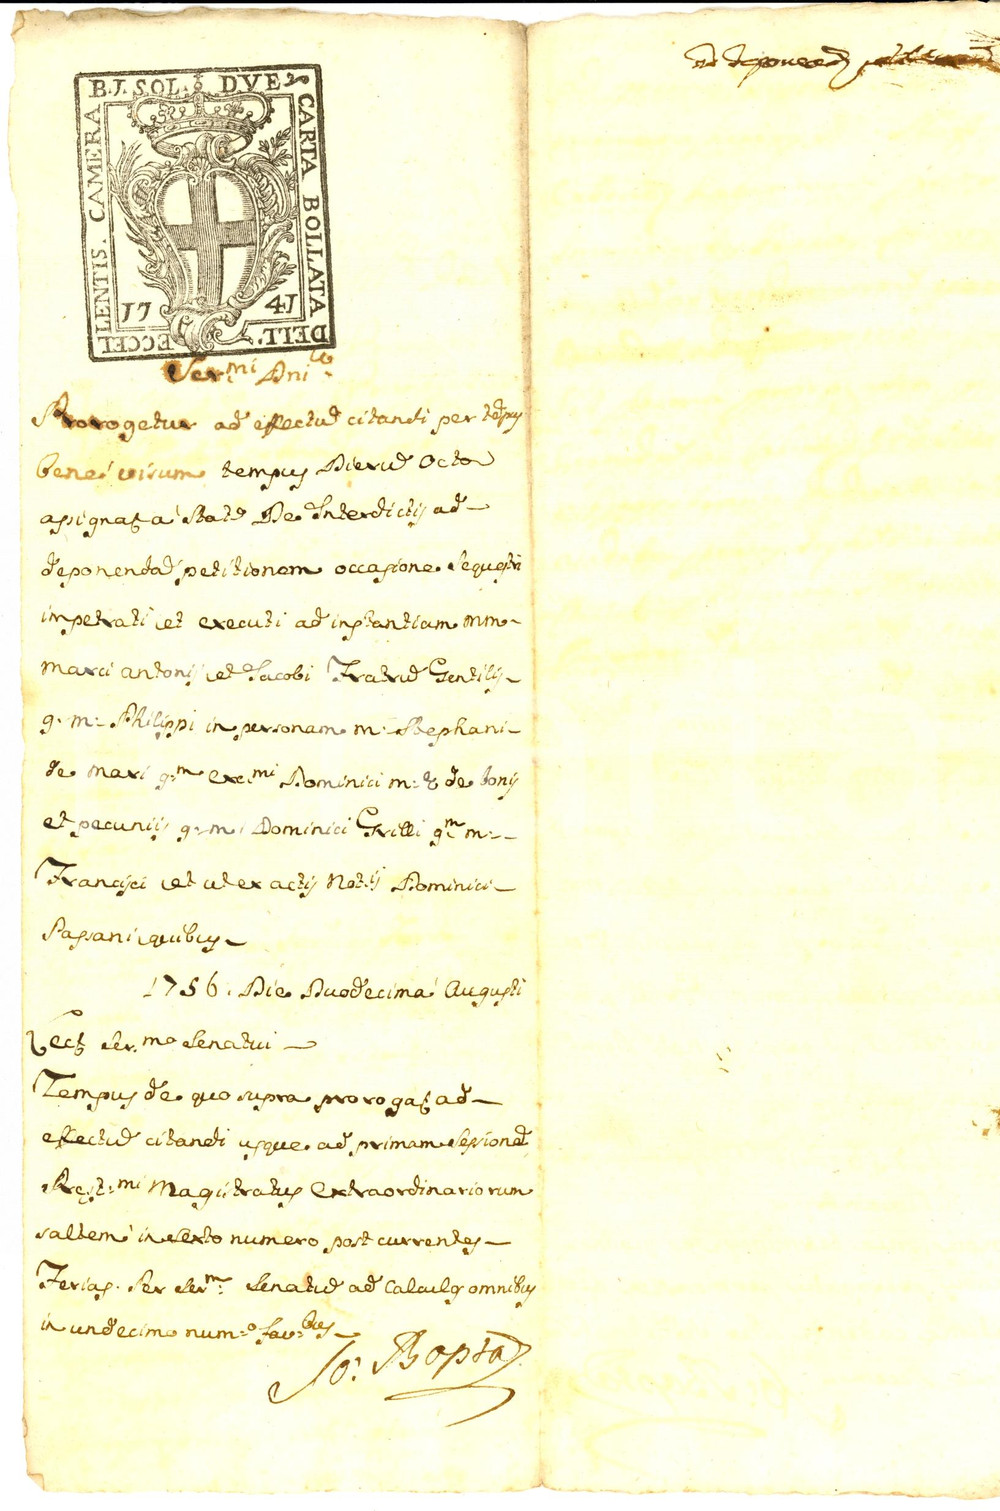 B.I. SOL. DVE
CARTA BOLLATA
DELL'. ECCEL
LENTIS. CAMERA
17 41
Ser.mi Dni
Prorogetur ad effectū citandi per
bene visum tempus Dierū Octo
assignata Stat. De Interdictis ad
deponendā petitionem occasione Sequestri
impetrati et executi ad instantiam MM.
Marci Antonij et Jacobi Fratrū Gentilis
q. m. Philippi in personam m. Stephani
de Mari q.m exc.mi Dominici m. et de bonis
et pecunijs q. m. Dominici Grilli q.m m.
Francisci et ut ex actis Not.ij Dominici
Passani quibus
1756. Die Duodecima Augusti
Lect. Ser.mo Senatui
Tempus de quo supra prorogat. ad
effectū citandi usque ad primam Sessionē
Prest.mi Magistratus Extraordinariorum
saltem in sexto numero post currentes
Ferias. Per Ser.m Senatū ad Calculos omnibus
in undecimo num.o fav.bus
Jo: Bapta
ad deponend